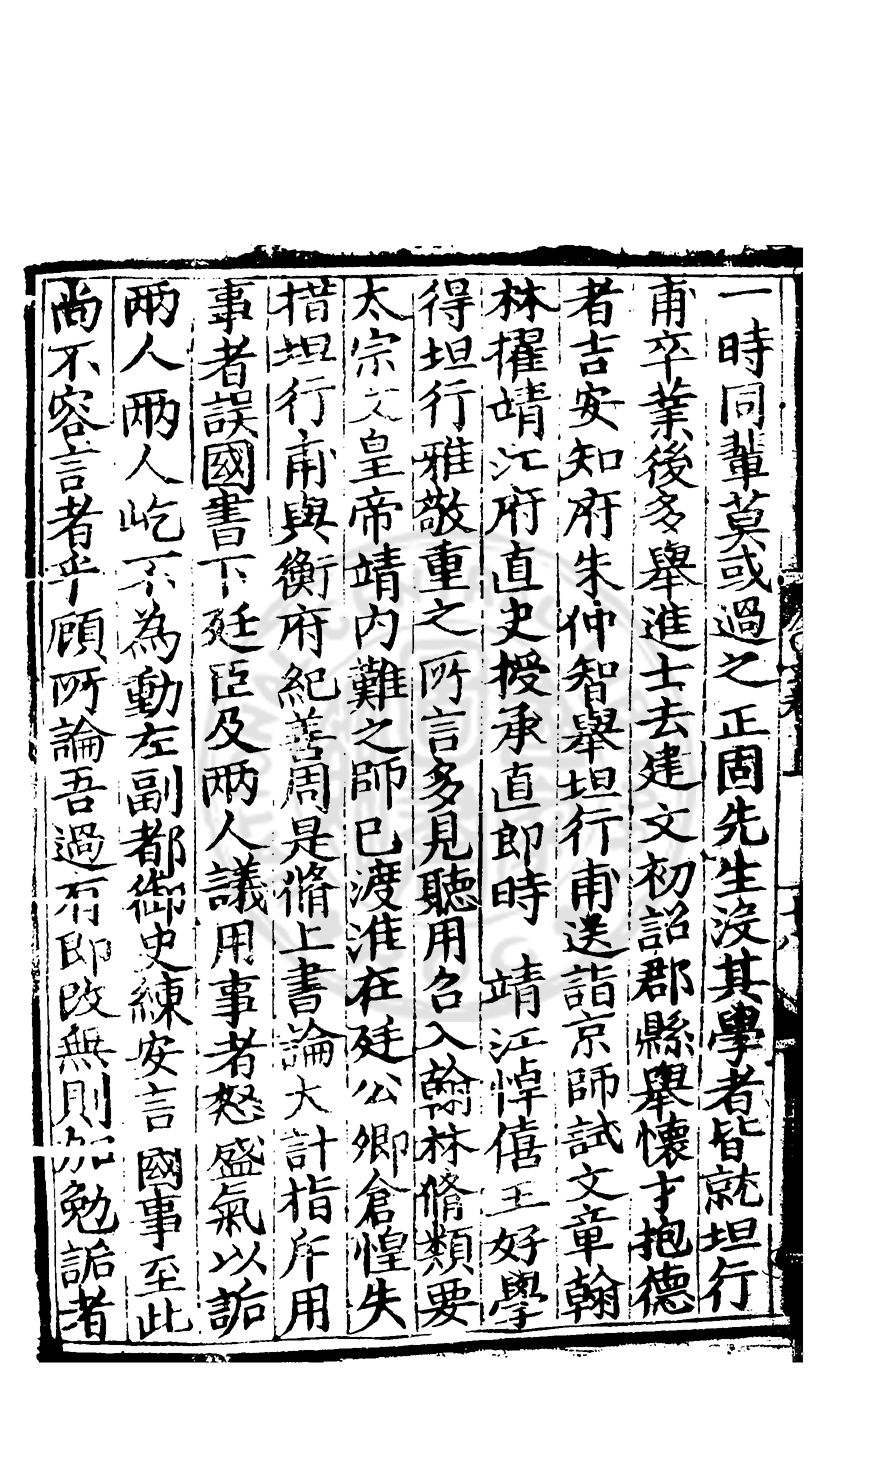 一時同輩莫或過之正固先生沒其學者皆就坦行
甫卒業後多舉進士去建文初詔郡縣舉懷才抱德
者吉安知府朱仲智舉坦行甫送詣京師試文章翰
林擢靖江府直史授承直郎時　靖江悼僖王好學
得坦行雅敬重之所言多見聽用召入翰林脩類要
太宗文皇帝靖內難之師已渡淮在廷公卿倉惶失
措坦行甫與衡府紀善周是脩上書論大計指斥用
事者誤國書下廷臣及兩人議用事者怒盛氣以詬
兩人兩人屹不為動左副都御史練安言國事至此
尚不容言者乎顧所論吾過有即改無則加勉詬者